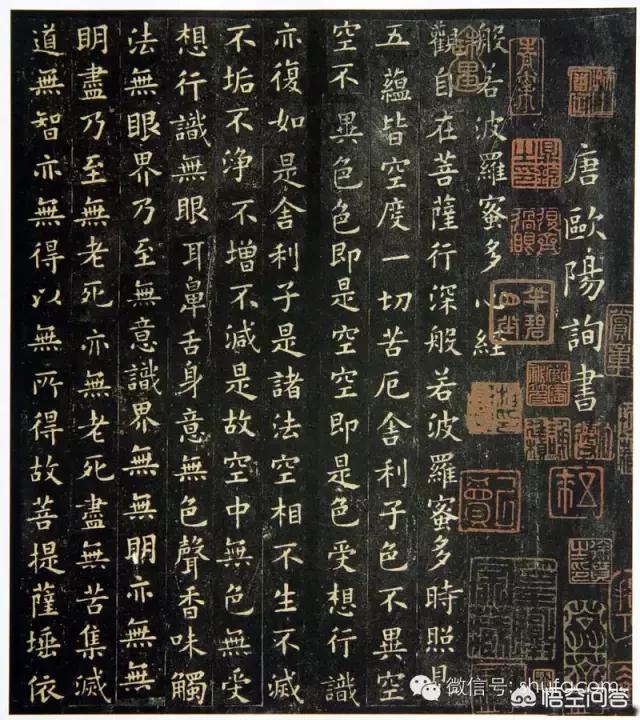 唐歐陽詢書
般若波羅蜜多心經
觀自在菩薩行深般若波羅蜜多時照見
五蘊皆空度一切苦厄舍利子色不異空
空不異色色即是空空即是色受想行識
亦復如是舍利子是諸法空相不生不滅
不垢不淨不增不減是故空中無色無受
想行識無眼耳鼻舌身意無色聲香味觸
法無眼界乃至無意識界無無明亦無無
明盡乃至無老死亦無老死盡無苦集滅
道無智亦無得以無所得故菩提薩埵依
微信号: shufacom
悟空问答